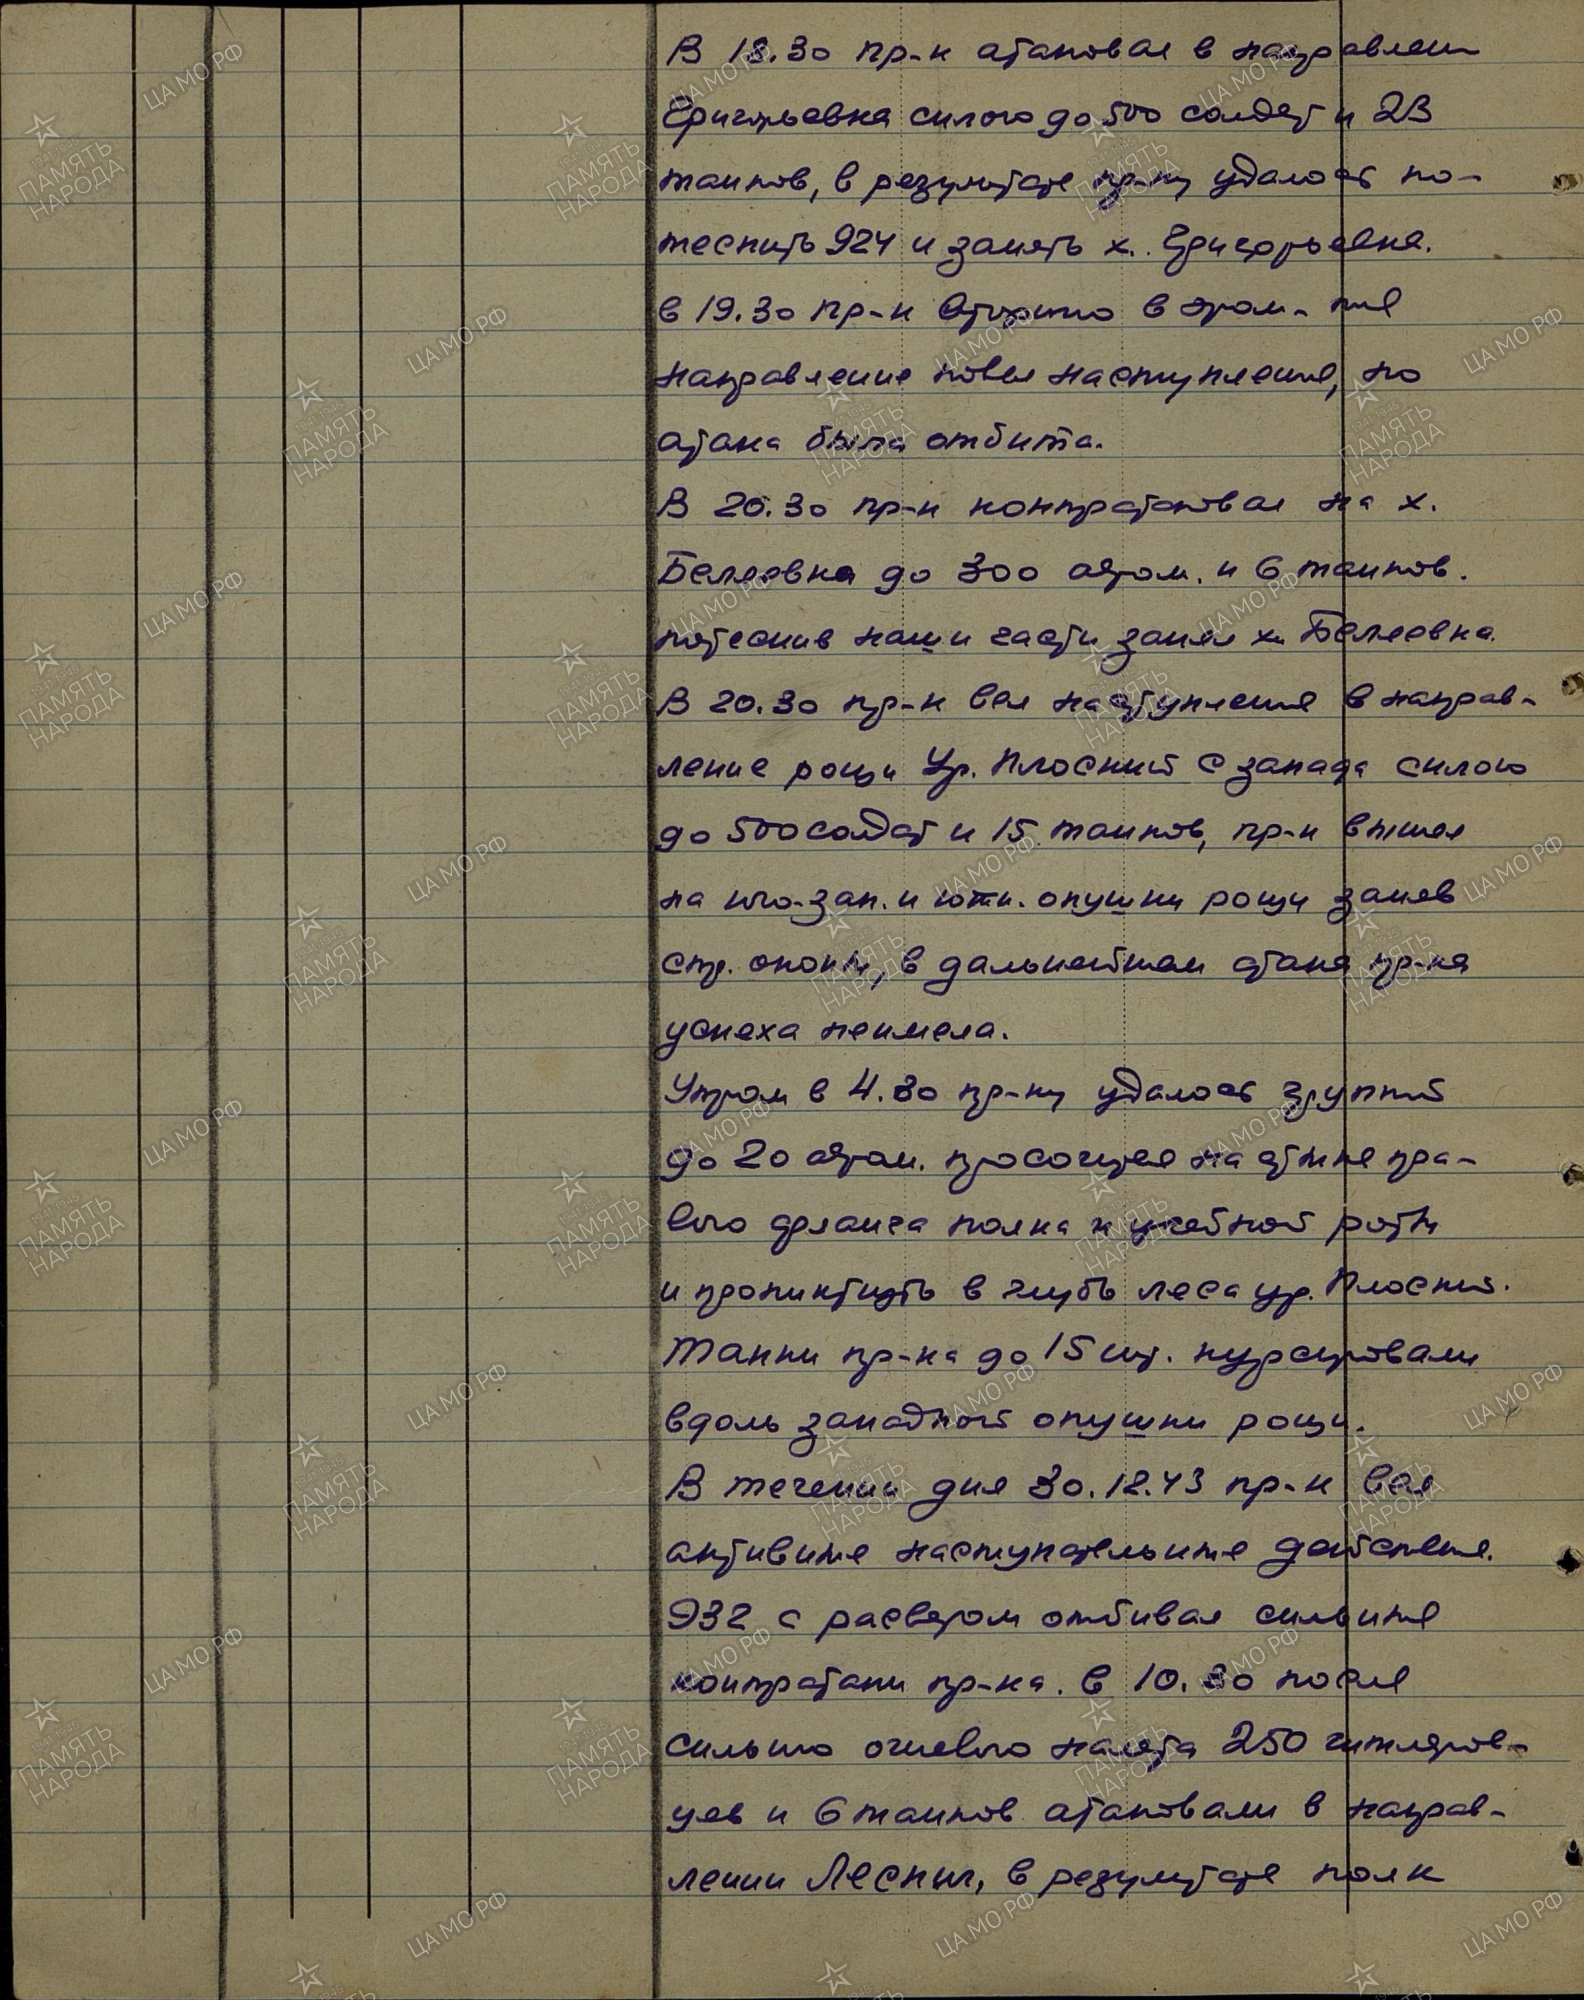 В 18.30 пр-к атаковал в направлении
Григорьевка силою до 500 солдат и 23
танков, в результате пр-ку удалось по-
теснить 924 и занять х. Григорьевка.
в 19.30 пр-к вторично в этом-же
направление повел наступление, но
атака была отбита.
В 20.30 пр-к контратаковал на х.
Белаевка до 300 автом. и 6 танков.
потеснив наши части занял х. Белаевка.
В 20.30 пр-к вел наступление в направ-
ление рощи Ур. Плоский с запада силою
до 500 солдат и 15 танков, пр-к вышел
на юго-зап. и южн. опушки рощи заняв
стр. окопы, в дальнейшем атака пр-ка
успеха неимела.
Утром в 4.30 пр-ку удалось группой
до 20 автом. просочится на стыке пра-
вого фланга полка и учебной роты
и проникнуть в глубь леса ур. Плоский.
Танки пр-ка до 15 шт. курсировали
вдоль западной опушки рощи.
В течении дня 30.12.43 пр-к вел
активные наступательные действия.
932 с расветом отбивал сильные
контратаки пр-ка. в 10.30 после
сильного огневого налета 250 гитлеров-
цев и 6 танков атаковали в направ-
лении Лесных, в результате полк
ЦА МО РФ
ПАМЯТЬ НАРОДА